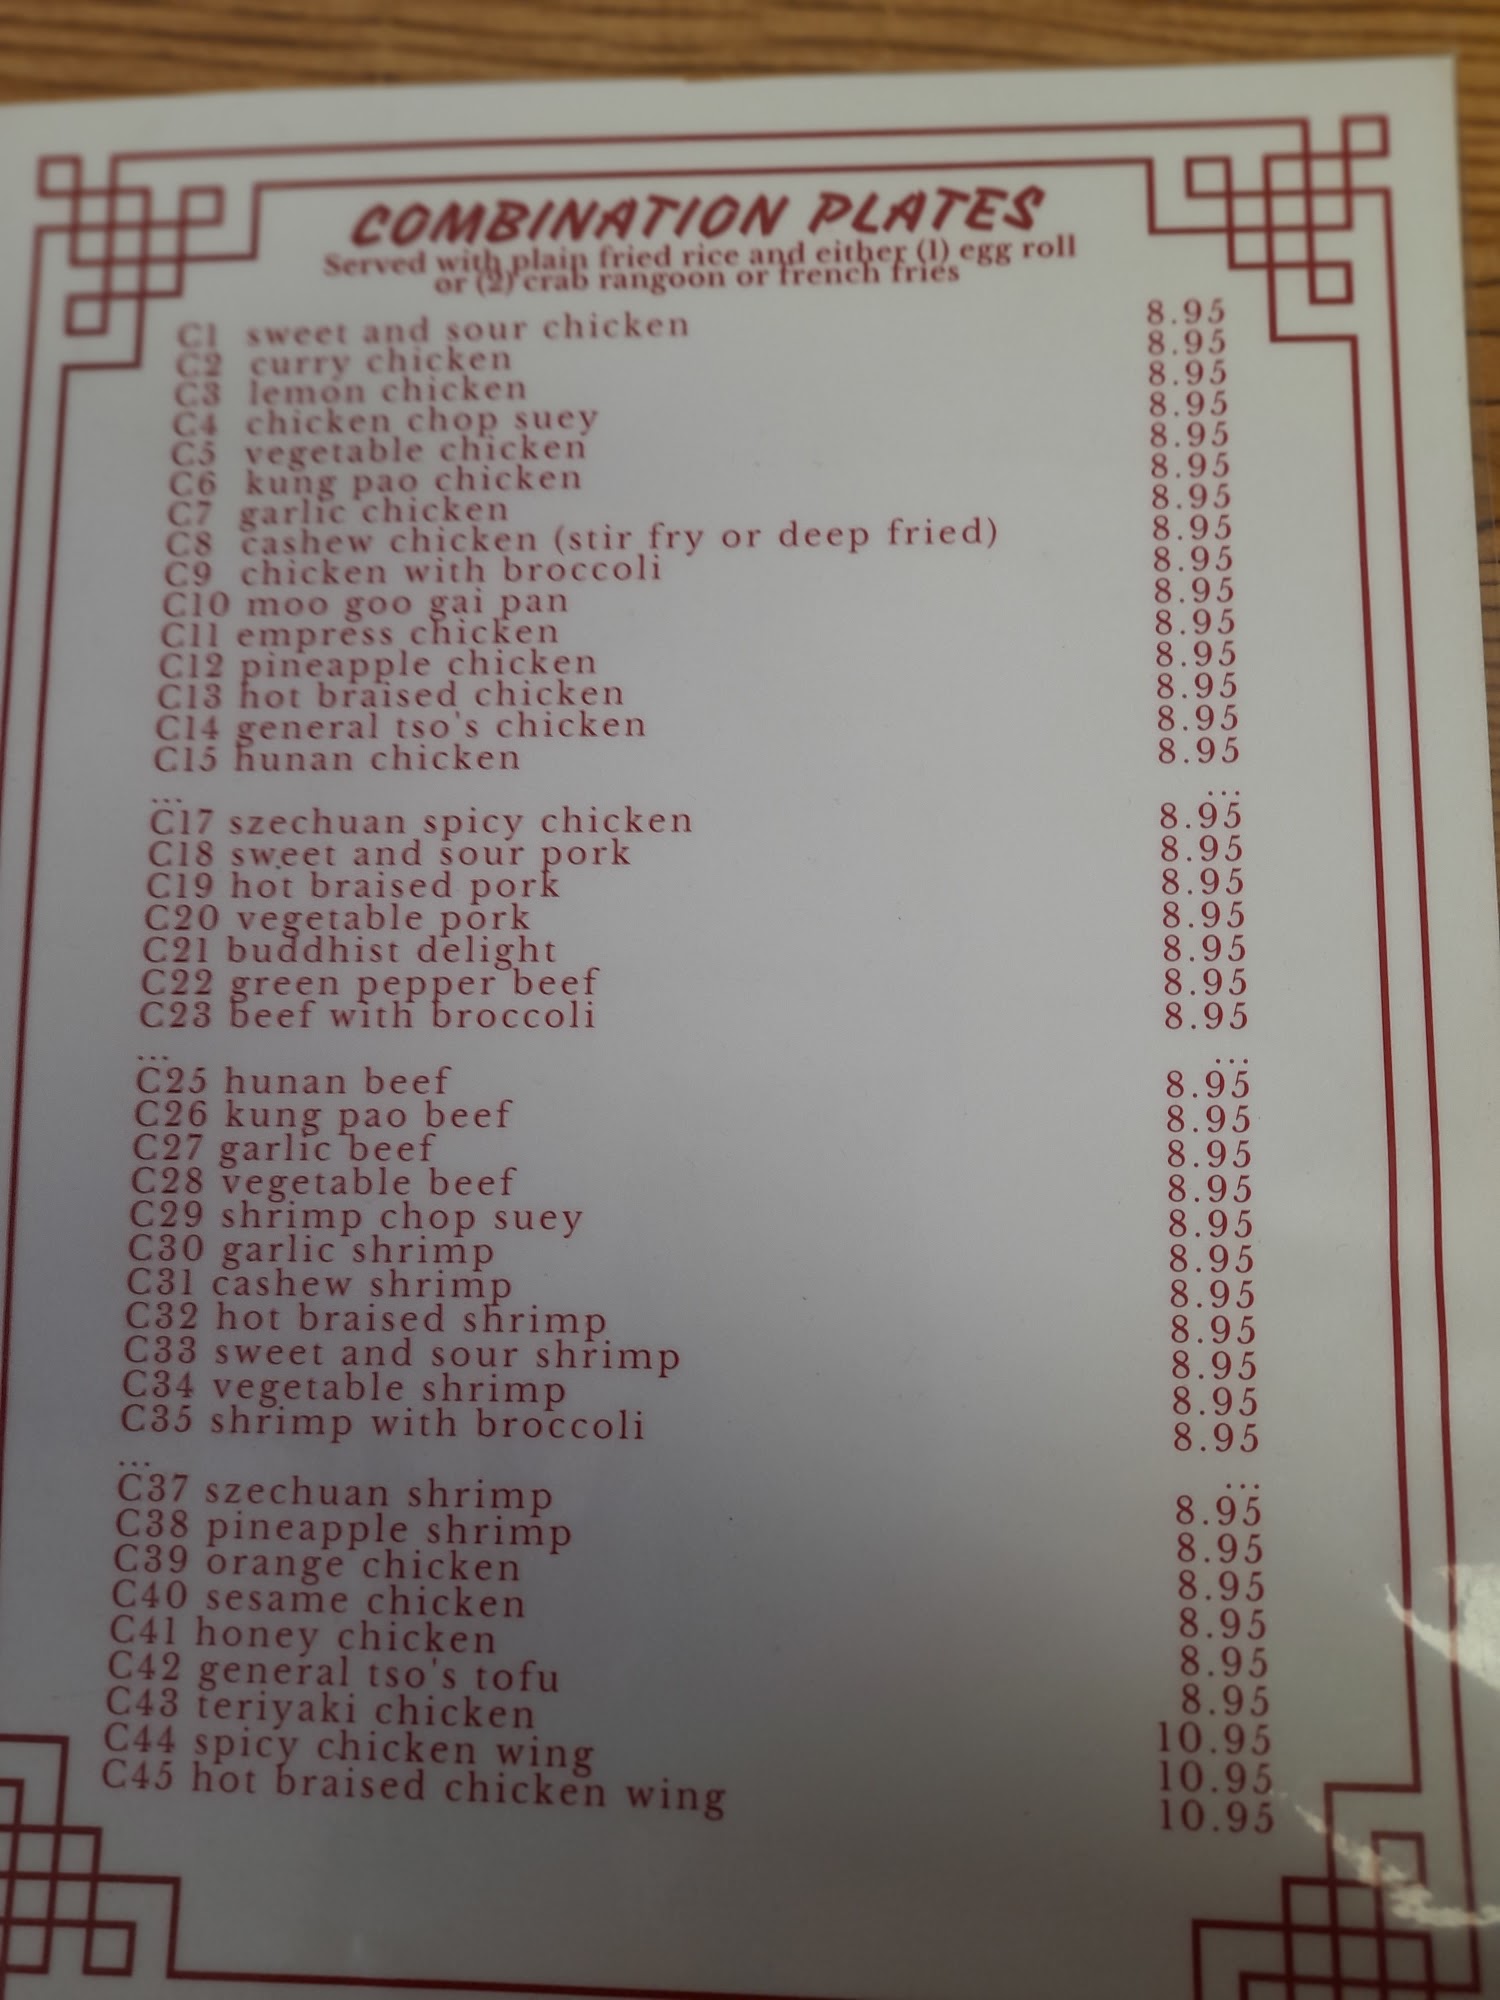 COMBINATION PLATES
Served with plain fried rice and either (1) egg roll
or (2) crab rangoon or french fries
C1 sweet and sour chicken 8.95
C2 curry chicken 8.95
C3 lemon chicken 8.95
C4 chicken chop suey 8.95
C5 vegetable chicken 8.95
C6 kung pao chicken 8.95
C7 garlic chicken 8.95
C8 cashew chicken (stir fry or deep fried) 8.95
C9 chicken with broccoli 8.95
C10 moo goo gai pan 8.95
C11 empress chicken 8.95
C12 pineapple chicken 8.95
C13 hot braised chicken 8.95
C14 general tso's chicken 8.95
C15 hunan chicken 8.95
... ...
C17 szechuan spicy chicken 8.95
C18 sweet and sour pork 8.95
C19 hot braised pork 8.95
C20 vegetable pork 8.95
C21 buddhist delight 8.95
C22 green pepper beef 8.95
C23 beef with broccoli 8.95
... ...
C25 hunan beef 8.95
C26 kung pao beef 8.95
C27 garlic beef 8.95
C28 vegetable beef 8.95
C29 shrimp chop suey 8.95
C30 garlic shrimp 8.95
C31 cashew shrimp 8.95
C32 hot braised shrimp 8.95
C33 sweet and sour shrimp 8.95
C34 vegetable shrimp 8.95
C35 shrimp with broccoli 8.95
... ...
C37 szechuan shrimp 8.95
C38 pineapple shrimp 8.95
C39 orange chicken 8.95
C40 sesame chicken 8.95
C41 honey chicken 8.95
C42 general tso's tofu 8.95
C43 teriyaki chicken 10.95
C44 spicy chicken wing 10.95
C45 hot braised chicken wing 10.95